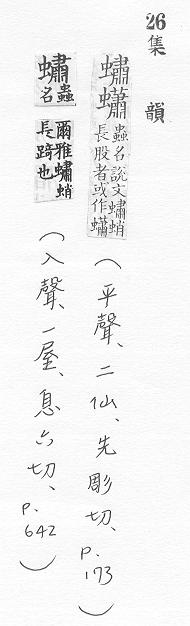 26 集韻
蟰蠨
蟲名說文蟰蛸
長股者或作蠨
(平聲、二仙、先彫切、p.173)
蟰
蟲
名
爾雅蟰蛸
長踦也
(入聲、一屋、息六切、p.642)